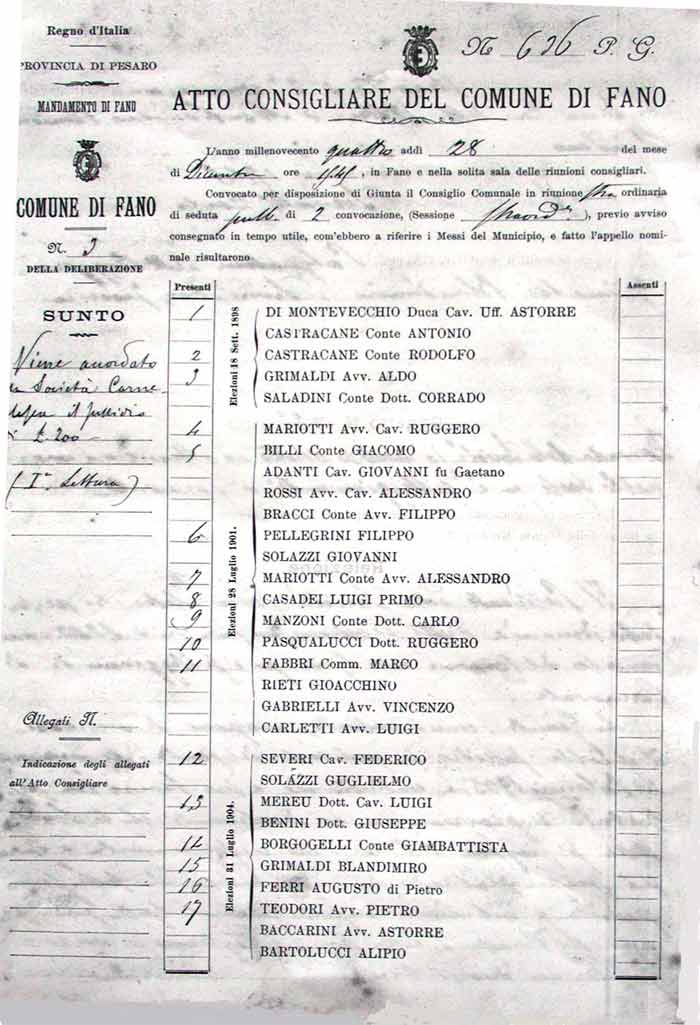 Regno d'Italia
PROVINCIA DI PESARO
MANDAMENTO DI FANO
COMUNE DI FANO
N. 3
DELLA DELIBERAZIONE
SUNTO
Viene accordato
Società Carne
il sussidio
£ 200
(Iª Lettura)
Allegati N.
Indicazione degli allegati
all'Atto Consigliare
N 636 P. G.
ATTO CONSIGLIARE DEL COMUNE DI FANO
L'anno millenovecento quattro addì 28 del mese
di Dicembre ore, in Fano e nella solita sala delle riunioni consigliari.
Convocato per disposizione di Giunta il Consiglio Comunale in riunione stra ordinaria
di seduta pubb. di 2 convocazione, (Sessione straord), previo avviso
consegnato in tempo utile, com'ebbero a riferire i Messi del Municipio, e fatto l'appello nomi-
nale risultarono
Presenti
Assenti
Elezioni 18 Sett. 1898
1 DI MONTEVECCHIO Duca Cav. Uff. ASTORRE
CASTRACANE Conte ANTONIO
2 CASTRACANE Conte RODOLFO
3 GRIMALDI Avv. ALDO
SALADINI Conte Dott. CORRADO
Elezioni 28 Luglio 1901.
4 MARIOTTI Avv. Cav. RUGGERO
5 BILLI Conte GIACOMO
ADANTI Cav. GIOVANNI fu Gaetano
ROSSI Avv. Cav. ALESSANDRO
BRACCI Conte Avv. FILIPPO
6 PELLEGRINI FILIPPO
SOLAZZI GIOVANNI
7 MARIOTTI Conte Avv. ALESSANDRO
8 CASADEI LUIGI PRIMO
9 MANZONI Conte Dott. CARLO
10 PASQUALUCCI Dott. RUGGERO
11 FABBRI Comm. MARCO
RIETI GIOACCHINO
GABRIELLI Avv. VINCENZO
CARLETTI Avv. LUIGI
Elezioni 31 Luglio 1904.
12 SEVERI Cav. FEDERICO
SOLAZZI GUGLIELMO
13 MEREU Dott. Cav. LUIGI
BENINI Dott. GIUSEPPE
14 BORGOGELLI Conte GIAMBATTISTA
15 GRIMALDI BLANDIMIRO
16 FERRI AUGUSTO di Pietro
17 TEODORI Avv. PIETRO
BACCARINI Avv. ASTORRE
BARTOLUCCI ALIPIO